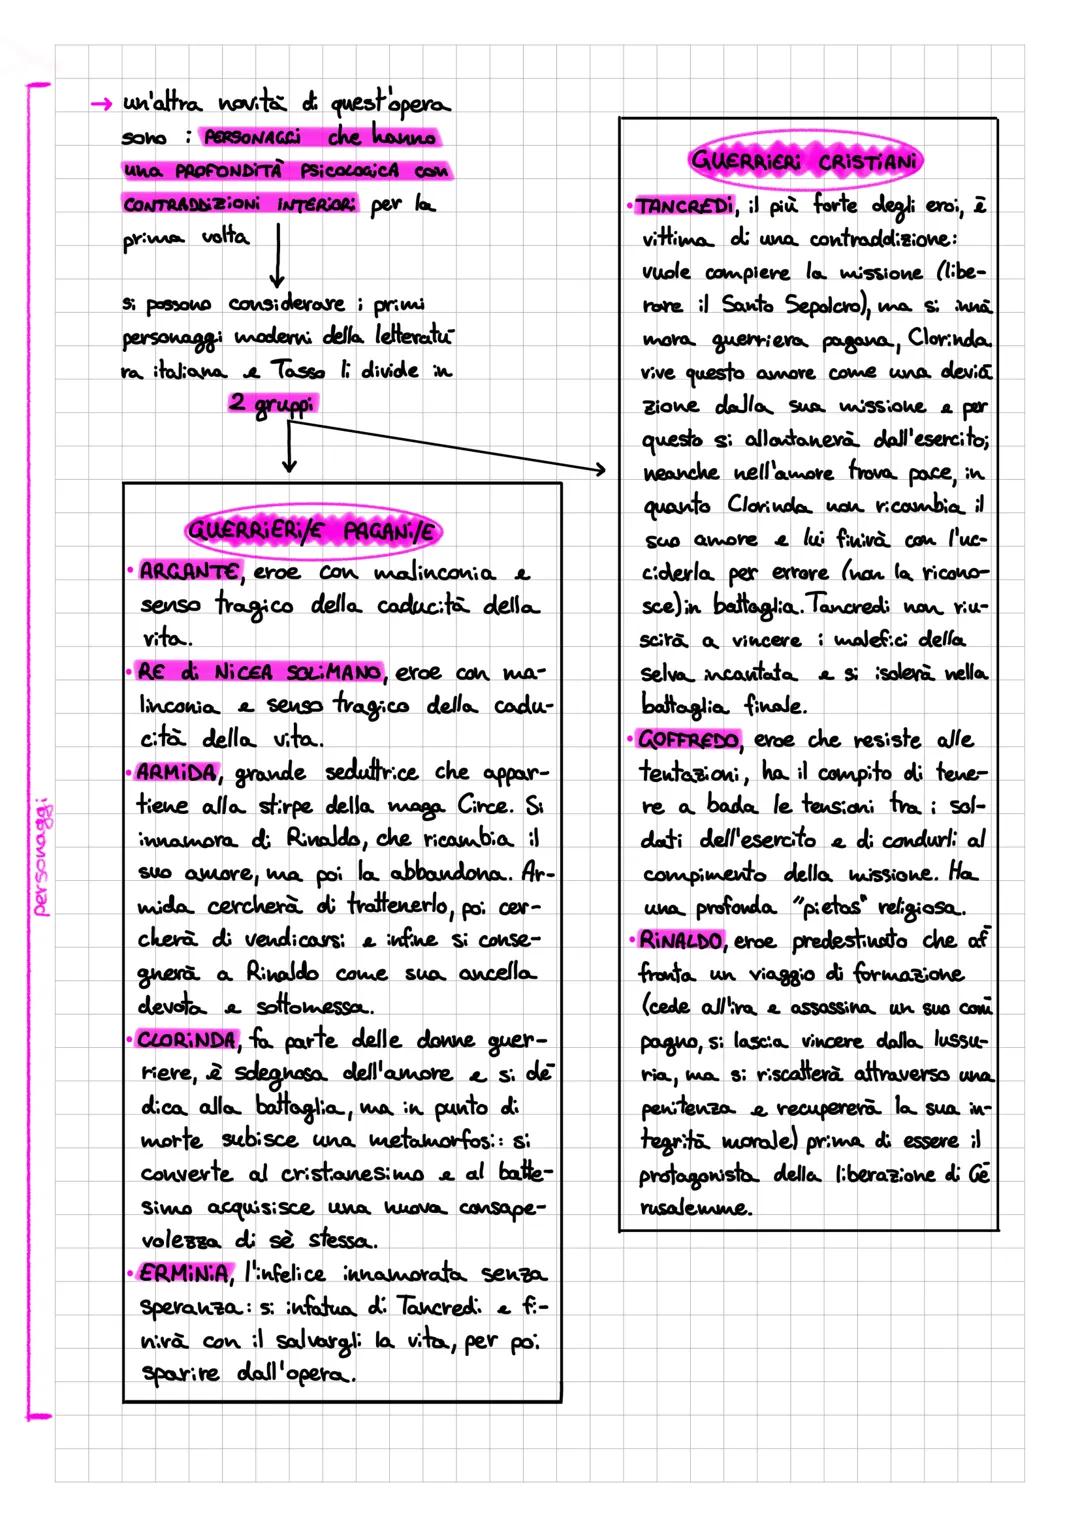 → un'altra novità di quest'opera
sono : PERSONAGGI che hanno
una PROFONDITÀ PSICOLOGICA con
CONTRADDIZIONI INTERIORI per la
prima volta
si possono considerare i primi
personaggi moderni della letteratu
ra italiana e Tasso li divide in
2 gruppi
GUERRIERI/E PAGANI/E
• ARGANTE, eroe con malinconia e
senso tragico della caducità della
vita.
• RE di NICEA SOLIMANO, eroe con ma-
linconia e senso tragico della cadu-
cità della vita.
• ARMIDA, grande seduttrice che appar-
tiene alla stirpe della maga Circe. Si
innamora di Rinaldo, che ricambia il
suo amore, ma poi la abbandona. Ar-
mida cercherà di trattenerlo, poi cer-
cherà di vendicarsi e infine si conse-
gnerà a Rinaldo come sua ancella
devota e sottomessa.
• CLORINDA, fa parte delle donne guer-
riere, è sdegnosa dell'amore e si de
dica alla battaglia, ma in punto di
morte subisce una metamorfosi: si
converte al cristanesimo e al batte-
simo acquisisce una nuova consape-
volezza di sè stessa.
• ERMINIA, l'infelice innamorata senza
speranza: si infatua di Tancredi e fi-
nirà con il salvargli la vita, per poi
sparire dall'opera.
GUERRIERI CRISTIANI
• TANCREDI, il più forte degli eroi, è
vittima di una contraddizione:
vuole compiere la missione (libe-
rare il Santo Sepolcro), ma si inna
mora guerriera pagana, Clorinda.
vive questo amore come una devia
zione dalla sua missione e per
questo si allontanerà dall'esercito;
neanche nell'amore trova pace, in
quanto Clorinda non ricambia il
suo amore e lui finirà con l'uc-
ciderla per errore (non la ricono-
sce) in battaglia. Tancredi non riu-
scirà a vincere i malefici della
selva incantata e si isolerà nella
battaglia finale.
• GOFFREDO, eroe che resiste alle
tentazioni, ha il compito di tene-
re a bada le tensioni tra i sol-
dati dell'esercito e di condurli al
compimento della missione. Ha
una profonda "pietas" religiosa.
• RINALDO, eroe predestinato che af
fronta un viaggio di formazione
(cede all'ira e assassina un suo com
pagno, si lascia vincere dalla lussu-
ria, ma si riscatterà attraverso una
penitenza e recupererà la sua in-
tegrità morale) prima di essere il
protagonista della liberazione di Ge
rusalemme.
personaggi